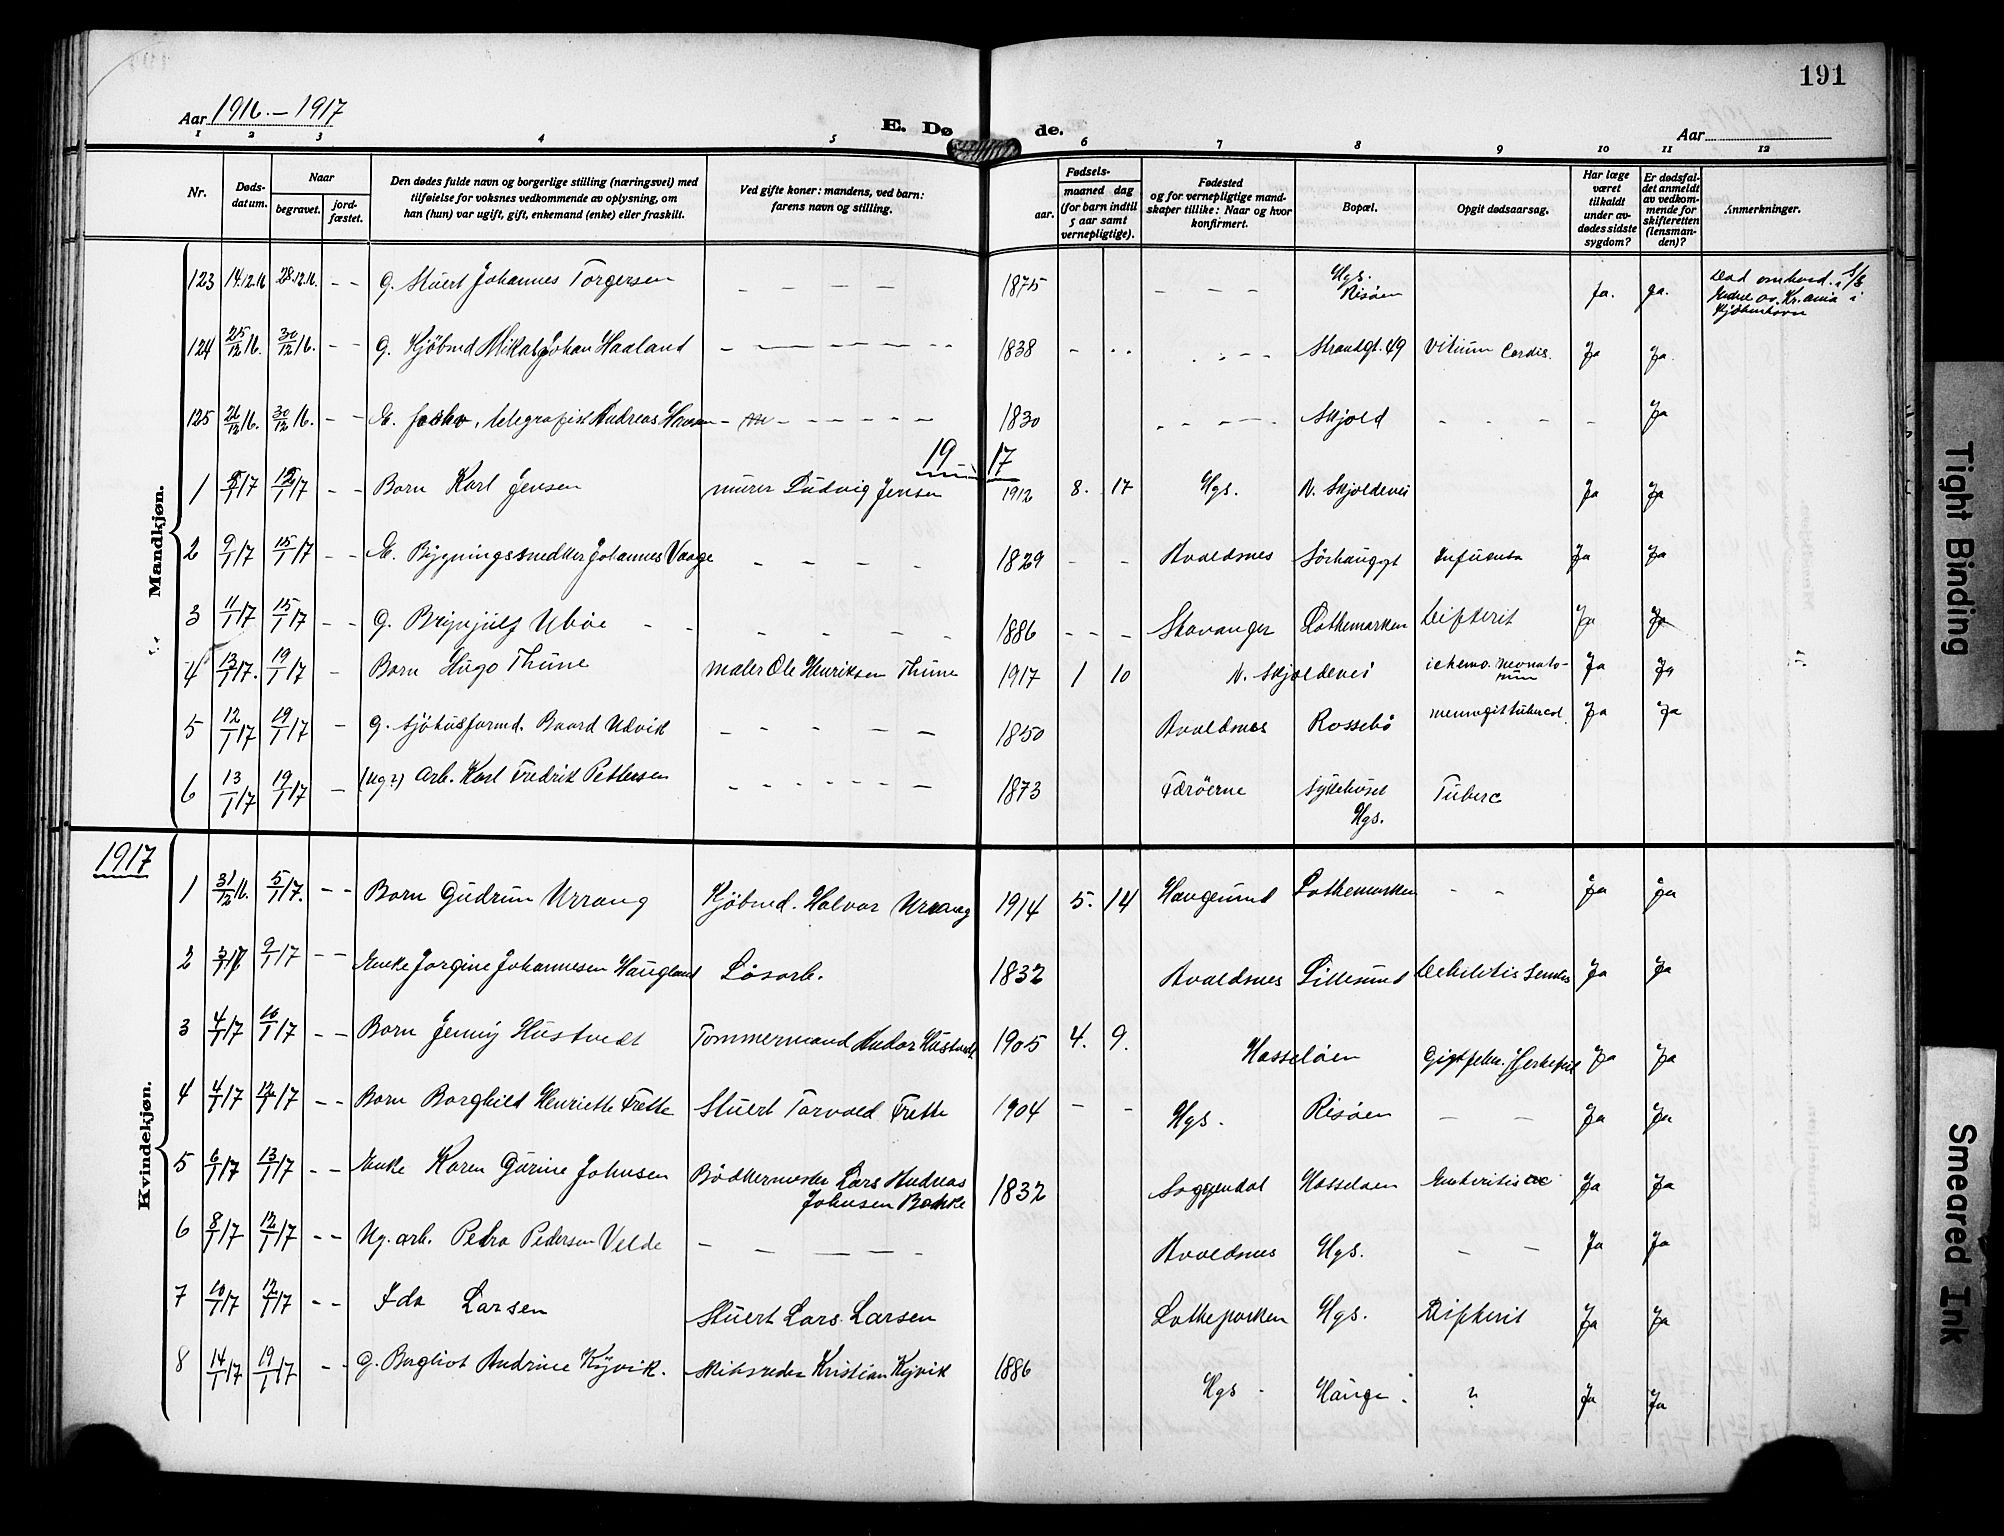 191
Aar 1916.–1917
E. Dø de.
Aar
1 2 3 4 5 6 7 8 9 10 11 12
Nr.
Døds-
datum.
Naar
begravet.
jord-
fæstet.
Den dødes fulde navn og borgerlige stilling (næringsvei) med
tilføielse for voksnes vedkommende av oplysning, om
han (hun) var ugift, gift, enkemand (enke) eller fraskilt.
Ved gifte koner: mandens, ved barn:
farens navn og stilling.
Fødsels-
aar.
maaned dag
(for barn indtil
5 aar samt
vernepligtige).
Fødested
og for vernepligtige mand-
skaper tillike: Naar og hvor
konfirmert.
Bopæl.
Opgit dødsaarsag.
Har læge
været
tilkaldt
under av-
dødes sidste
sygdom?
Er dødsfal-
det anmeldt
av vedkom-
mende for
skifteretten
(lensman-
den)?
Anmerkninger.
Mandkjøn.
123 14.12.16 28.12.16. – – G. Stuert Johannes Torgersen – – – – 1875 – – – Hgs. Risøen Ja. Ja. Død ombord i S/S
av Kr.ania i
Kjøbenhavn
124 25/12 16. 30/12 16. – – G. Kjøbmd Johan Haaland 1838 Strandgt. 49 Vitium Cordis. Ja Ja.
125 26/12 16. 30/12 16. – – E. telegrafist Andreas 1830 Skjold Ja
1917
1 5/1 17 12/1 17 – – Barn Karl Jensen murer Ludvig Jensen 1912 8. 17 Hgs. N. Skjoldevei Ja Ja
2 9/1 17 15/1 17 – – E. Bygningssnedker Johannes Vaage – – – – 1829 – – Avaldsnes Sörhauggt Influensa Ja Ja
3 11/1 17 15/1 17 – – G. Brynjulf Uböe 1886 – – – Stavanger Lothemarken Difterit Ja Ja
4 13/1 17. 19/1 17 – Barn Hugo Thune maler Ole Henriksen Thune 1917 1 10 N. Skjoldevei neonato-
rum Ja Ja
5 12/1 17 19/1 17 – G. Sjöhusformd. Baard Udvik – – – – 1850 Avaldsnes Rossebö Ja Ja
6 13/1 17 19/1 17 – (ug?) Arb. Karl Fredrik Pettersen 1873 Færöerne Sykehuset
Hgs. Tuberc
1917
Kvindekjøn.
1 31/12 16. 5/1 17. – – Barn Gudrun Urrang Kjöbmd. Halvor Urrang 1914 5. 14 Haugesund Lothemarken – – Ja Ja
2 3/1 17 9/1 17 – – Enke Jorgine Johannesen Haugland Lösarb. 1832 Avaldsnes Lillesund Debilitis Senilis Ja Ja
3 4/1 17 10/1 17 – – Barn Jenny Hustvedt Tømmermand Andor Hustvedt 1905 4. 9. Hasselöen Gigtfeber. Hjertefeil Ja Ja
4 4/1 17 12/1 17 – – Barn Borghild Henriette Frette Stuert Torvald Frette 1904 – – Hgs. Risöen – – Ja Ja
5 6/1 17 13/1 17 – – Enke Karen Gurine Johnsen Bödkermester Lars Andreas
Johnsen Bakke 1832 Soggendal Hasseløen Enteritis ac Ja Ja
6 8/1 17 12/1 17 – – Ug. arb. Petra Pedersen Velde – – – – Avaldsnes Hgs. – – Ja Ja
7 10/1 17 12/1 17 – – Ida Larsen Stuert Lars Larsen Lotheparken Hgs. Difterit Ja Ja
8 14/1 17 19/1 17 – – G. Bergliot Andrine Kyvik. Skibsreder Kristian Kyvik 1886 Hgs Hauge. ? Ja Ja
Tight Binding
Smeared Ink